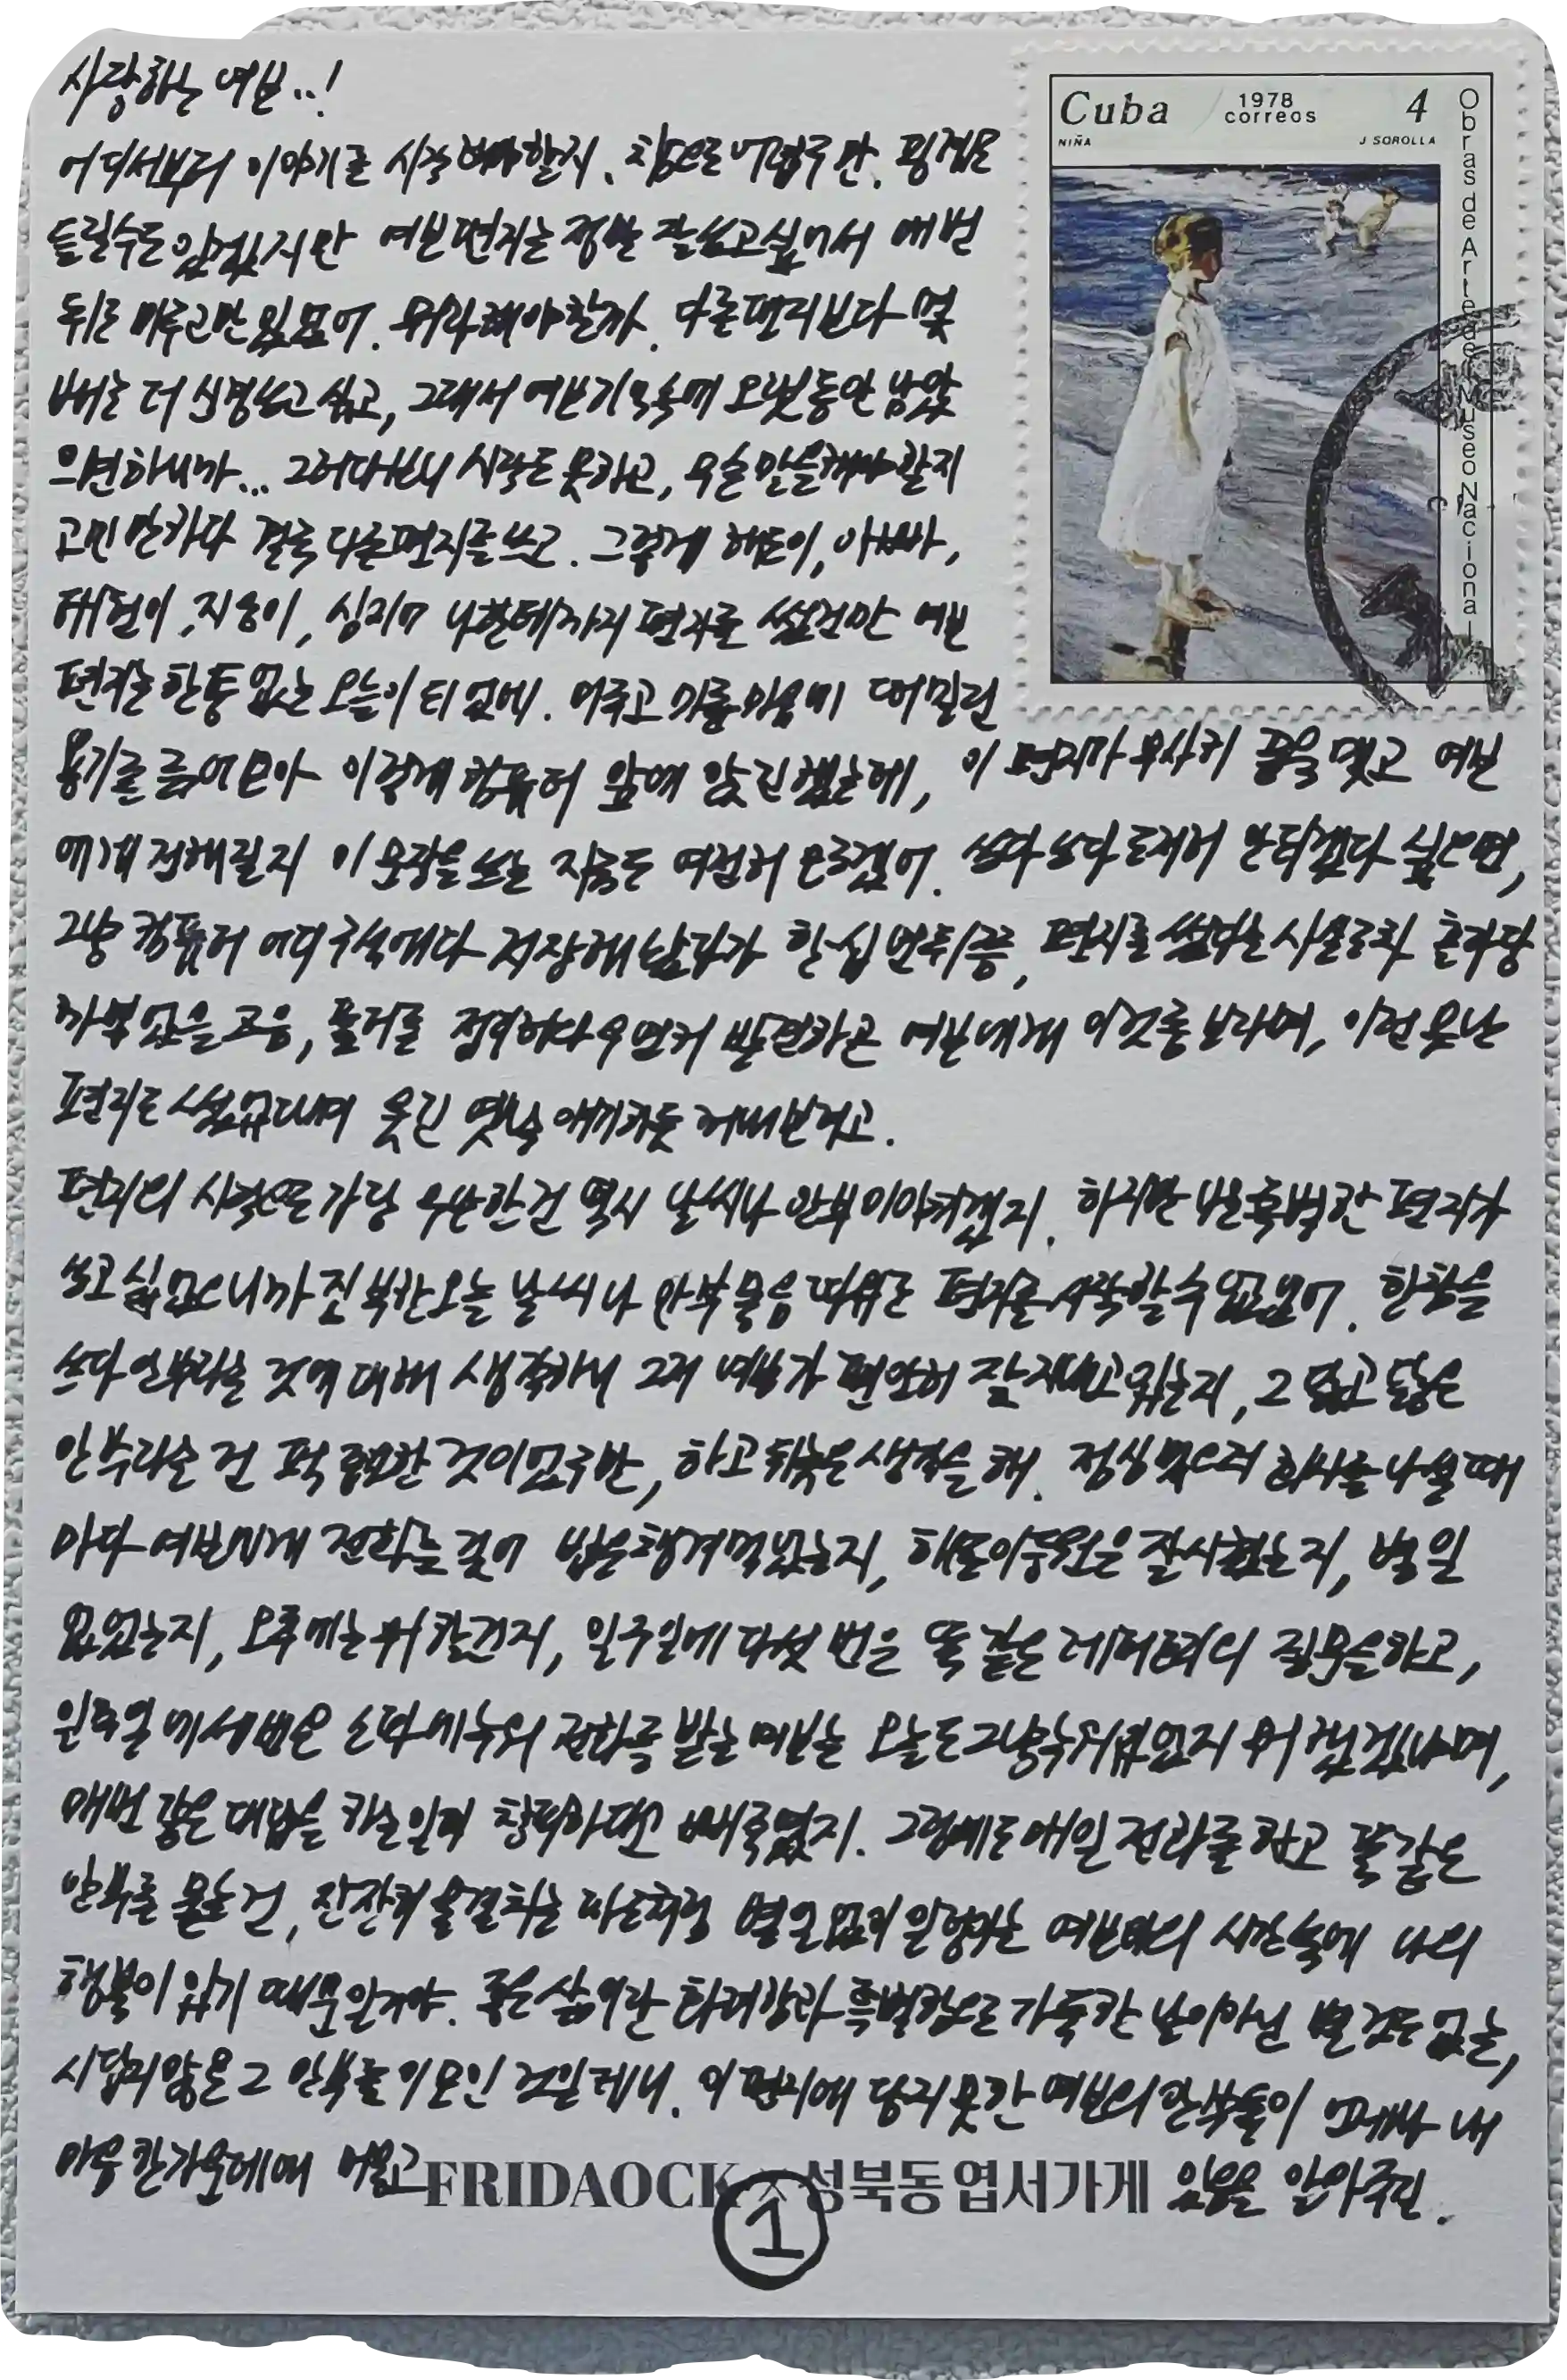 사랑하는 여보..!
어디서부터 이야기를 시작해야할지. 참으로 어렵구만. 핑검은
들릴수도 있겠지만 여보편지는 정말 잘쓰고싶어서 매번
뒤로 미루고만 있었어. 뭐라해야할까. 다른편지보다 몇
배는 더 신경쓰고 싶고, 그래서 여보기억속에 오랫동안 남았
으면하니까... 그러다보니 시작도 못하고, 무슨말을해야할지
고민만하다 결국 다른편지를 쓰고. 그렇게 해든이, 아빠,
태현이, 지응이, 심지어 나한테까지 편지를 썼건만 여보
편지는 한통 없는 오늘이 되었네. 미루고 미룰 마음에 떠밀린
용기를 긁어모아 이렇게 컴퓨터 앞에 앉긴했는데, 이 편지가 무사히 끝을 맺고 여보
에게 전해질지 이 문장을 쓰는 지금도 여전히 모르겠어. 쓰다 쓰다 도저히 안되겠다 싶으면,
그냥 컴퓨터 어디 구석에다 저장해놨다가 한 십 년 뒤쯤, 편지를 썼다는 사실조차
까먹었을 즈음, 폴더를 정리하다 우연히 발견하곤 여보에게 이것 좀 보라며, 이런 못난
편지도 썼었다며 웃긴 옛날 얘기하듯 꺼내보려고.
편지의 시작으로 가장 무난한건 역시 날씨나 안부 이야기겠지. 하지만 나는 특별한 편지가
쓰고 싶었으니까 진부한 오늘 날씨나 안부 물음 따위로 편지를 시작할 수 없었어. 한참을
쓰다 안부라는 것에 대해 생각하니 그저 여보가 편안히 잘 지내고 있는지, 그 닳고 닳은
안부라는 건 퍽 귀한 것이었구만, 하고 뒤늦은 생각을 해. 점심 먹으러 회사를 나설 때
마다 여보에게 전화를 걸어 밥은 챙겨먹었는지, 해든이 등원은 잘 시켰는지, 별 일
없었는지, 오후에는 뭐 할건지, 일주일에 다섯 번은 똑같은 레퍼토리의 질문을 하고,
일주일에 세 번은 소파에 누워 전화를 받는 여보는 오늘도 그냥 누워있었지 뭐 했겠냐며,
매번 같은 대답을 하는 일이 창피하다고 했지. 그럼에도 매일 전화를 하고 똑같은
안부를 묻는 건, 잔잔히 물결치는 파도처럼 별 일 없이 일렁이는 여보의 시간 속에 나의
행복이 있기 때문일거야. 좋은 삶이란 화려함과 특별함으로 가득한 날이 아닌 별것도 없는,
시답지 않은 그 안부들이 모인 것일테니. 이 편지에 담지 못한 여보의 안부들이 언제나 내
마음 한가운데에 머물고 있음을 알아주길.
FRIDAOCK × 성북동 엽서가게
1
Cuba 1978 correos 4
NIÑA J SOROLLA
Obras de Arte del Museo Nacional